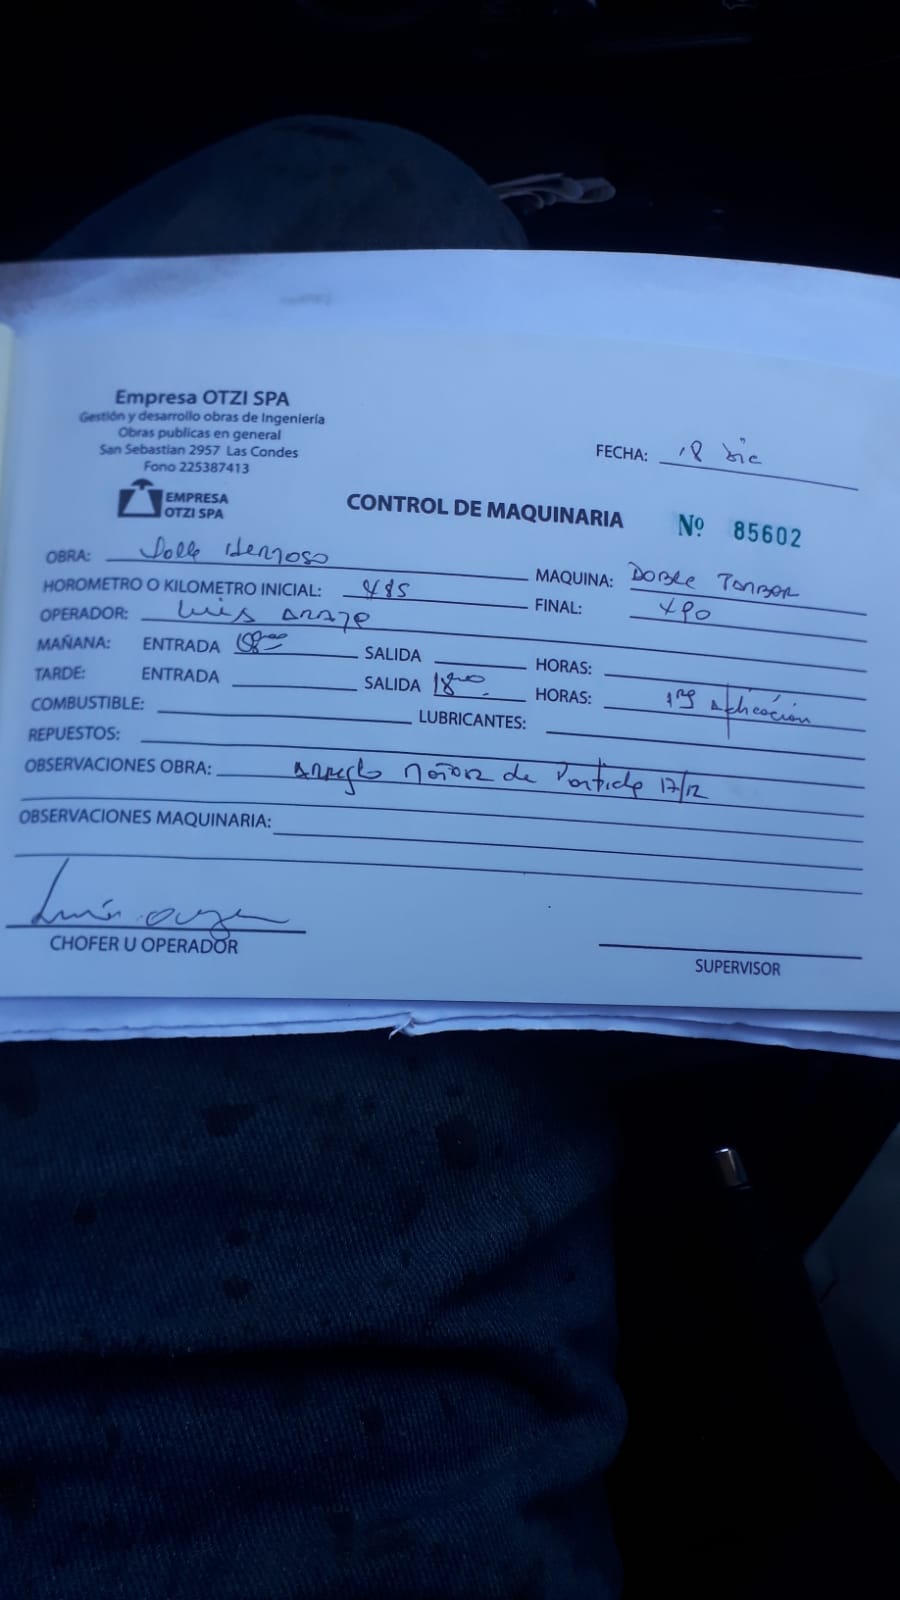 Empresa OTZI SPA
Gestión y desarrollo obras de Ingeniería
Obras publicas en general
San Sebastian 2957 Las Condes
Fono 225387413
EMPRESA
OTZI SPA
FECHA: 18 dic
CONTROL DE MAQUINARIA
Nº 85602
OBRA: Valle Hermoso
MAQUINA: DOBLE TAMBOR
HOROMETRO O KILOMETRO INICIAL: 485
FINAL: 490
OPERADOR: Luis Araya
MAÑANA: ENTRADA 08:00 SALIDA HORAS:
TARDE: ENTRADA SALIDA 18:00 HORAS: Aplicación
COMBUSTIBLE: LUBRICANTES:
REPUESTOS:
OBSERVACIONES OBRA: Arreglo Motor de Partida 17/12
OBSERVACIONES MAQUINARIA:
CHOFER U OPERADOR
SUPERVISOR